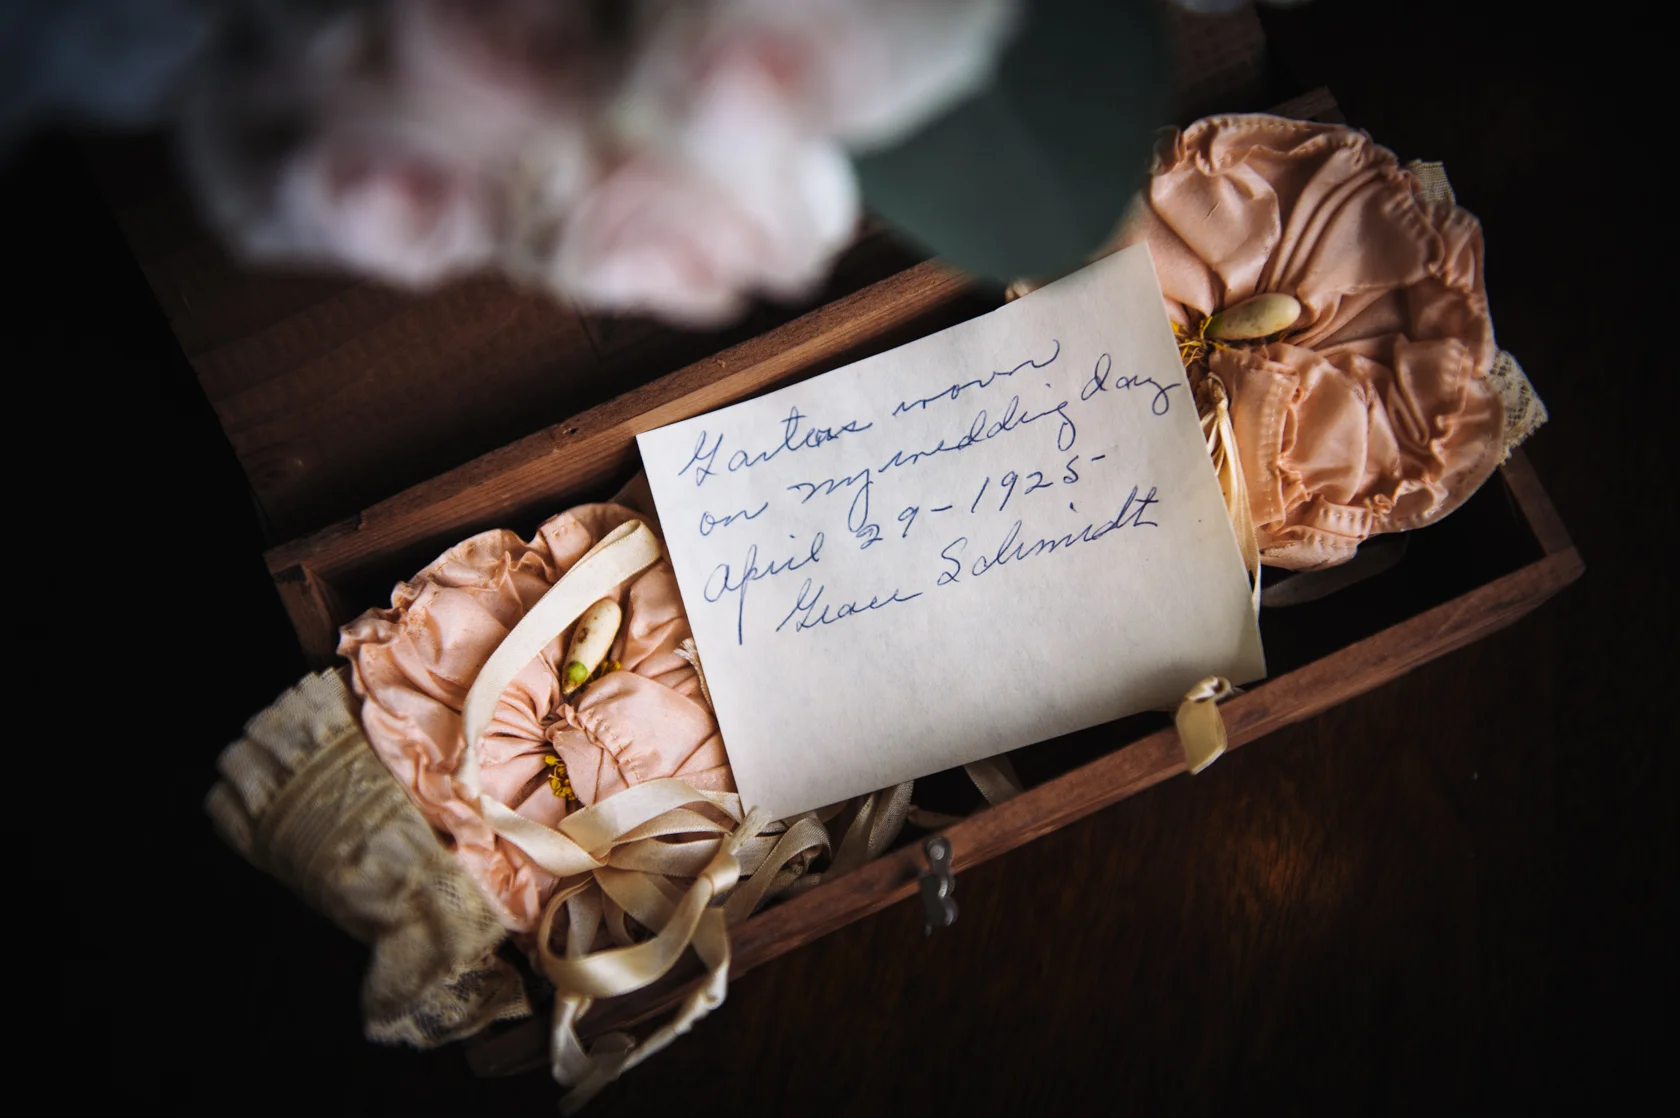 Garters worn
on my wedding day
April 29-1925-
Grace Schmidt